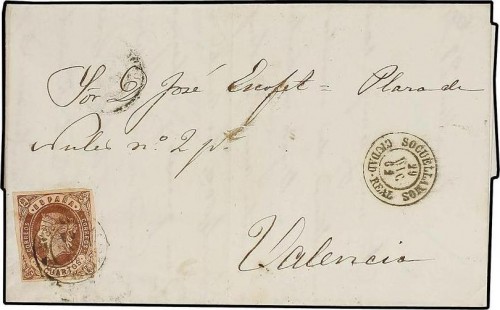 Sor D. José Escofet = Plaza de
Nules nº 2 pl.
SOCUELLAMOS
CIUDAD-REAL
Valencia
CORREOS ESPAÑA CORREOS
4 CUARTOS